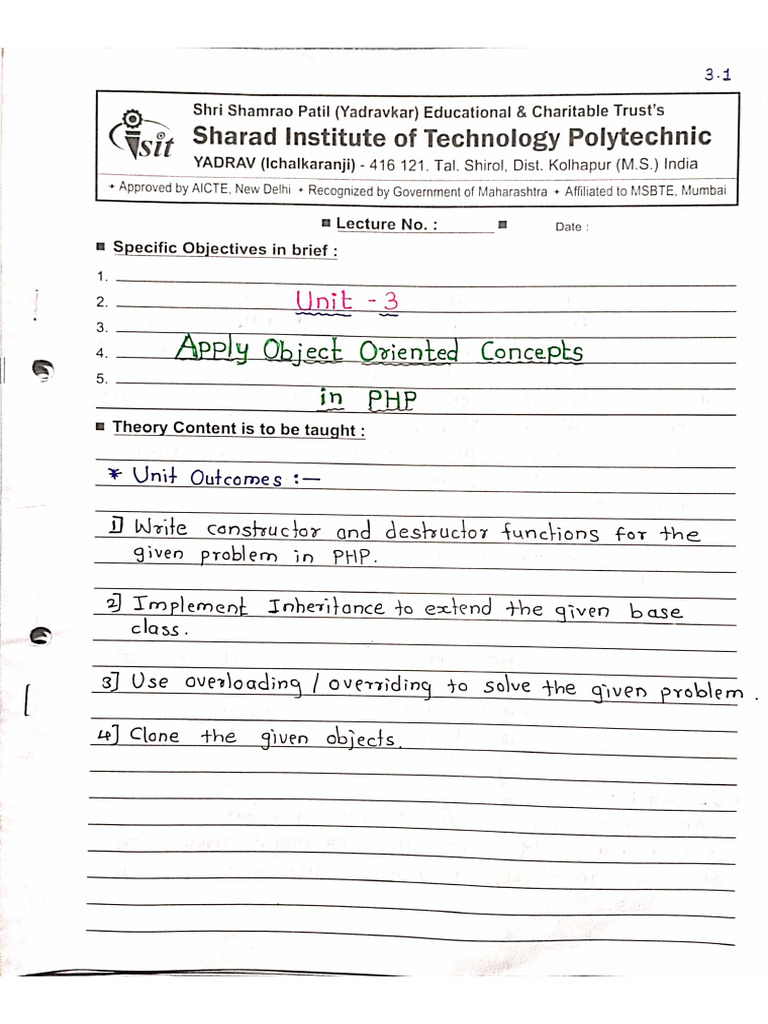 3.1
Shri Shamrao Patil (Yadravkar) Educational & Charitable Trust's
Sharad Institute of Technology Polytechnic
YADRAV (Ichalkaranji) - 416 121. Tal. Shirol, Dist. Kolhapur (M.S.) India
+ Approved by AICTE, New Delhi + Recognized by Government of Maharashtra + Affiliated to MSBTE, Mumbai
sit
■ Lecture No. : ■ Date :
■ Specific Objectives in brief :
1.
2. Unit - 3
3.
4. Apply Object Oriented Concepts
5.
in PHP
■ Theory Content is to be taught :
* Unit Outcomes :-
1] Write constructor and destructor functions for the
given problem in PHP.
2] Implement Inheritance to extend the given base
class.
3] Use overloading / overriding to solve the given problem.
4] Clone the given objects.